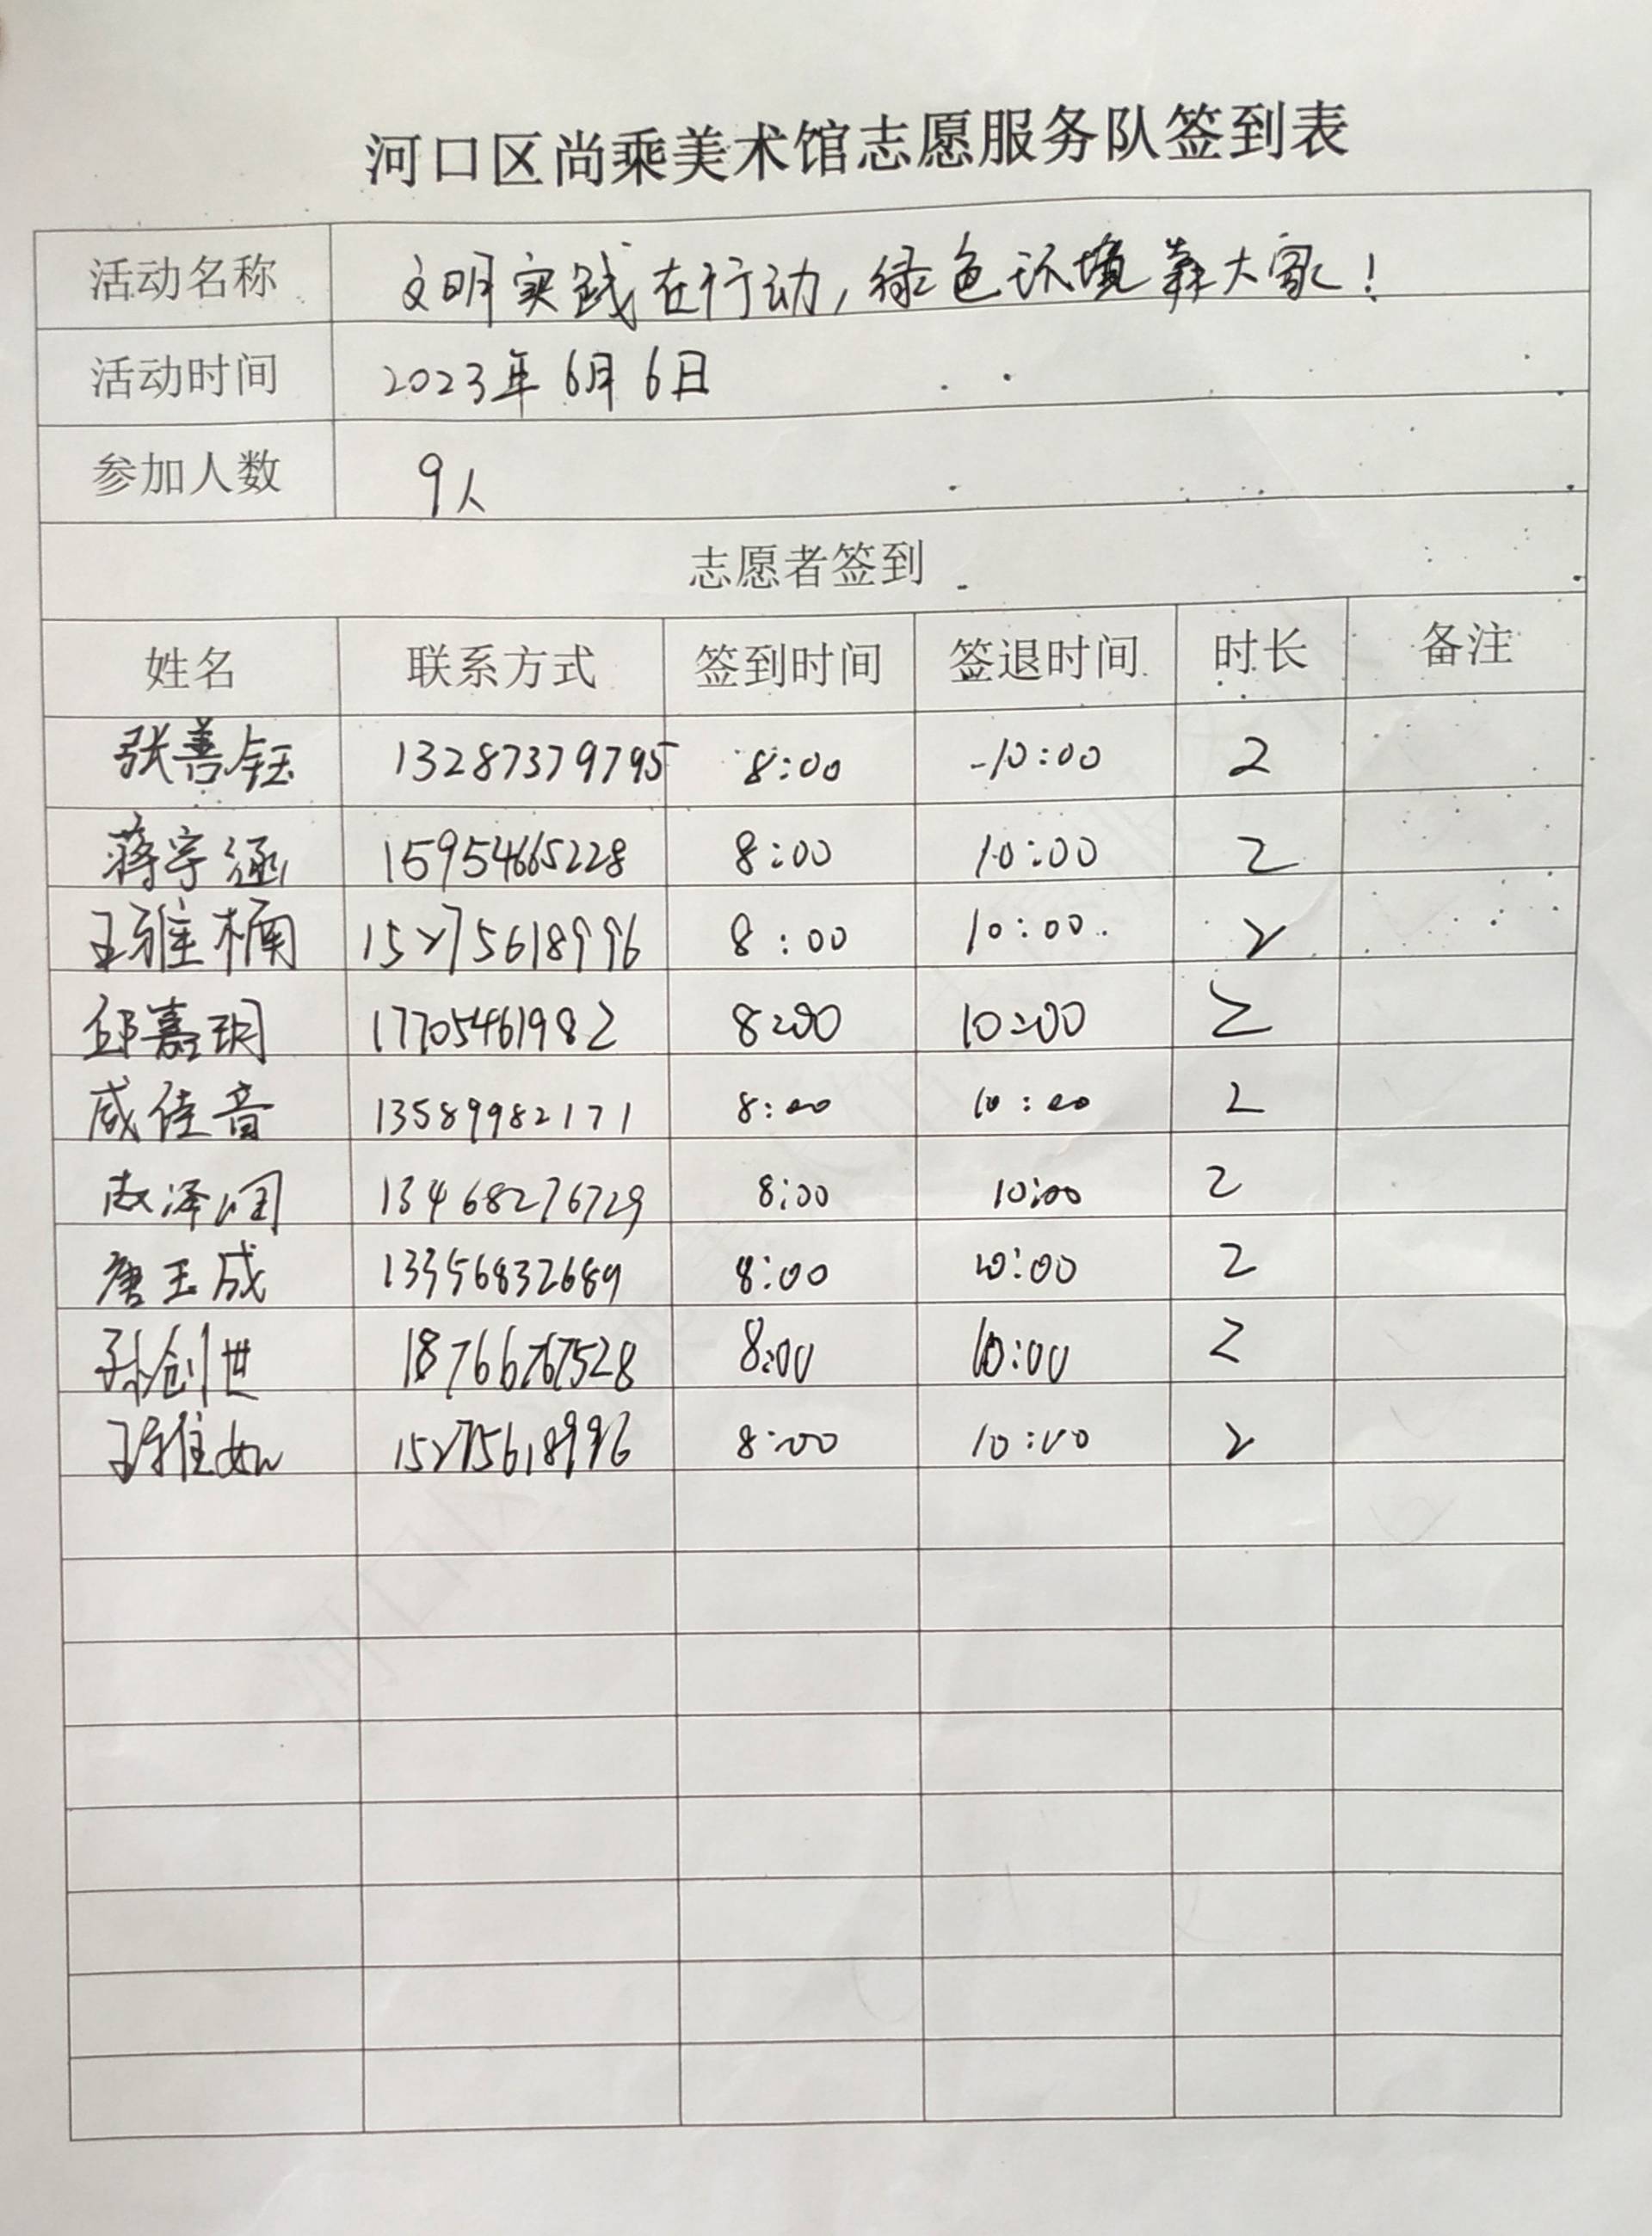 河口区尚乘美术馆志愿服务队签到表
活动名称 文明实践在行动,绿色环境靠大家!
活动时间 2023年6月6日
参加人数 9人
志愿者签到
姓名 联系方式 签到时间 签退时间 时长 备注
张善钰 13287379795 8:00 10:00 2
蒋宇涵 15954665228 8:00 10:00 2
王雅楠 15275618996 8:00 10:00 2
邱嘉玥 17705461982 8:00 10:00 2
咸佳音 13589982171 8:00 10:00 2
赵泽润 13468276729 8:00 10:00 2
唐玉成 13356832689 8:00 10:00 2
孙创世 18766767528 8:00 10:00 2
王雅如 15275618996 8:00 10:00 2